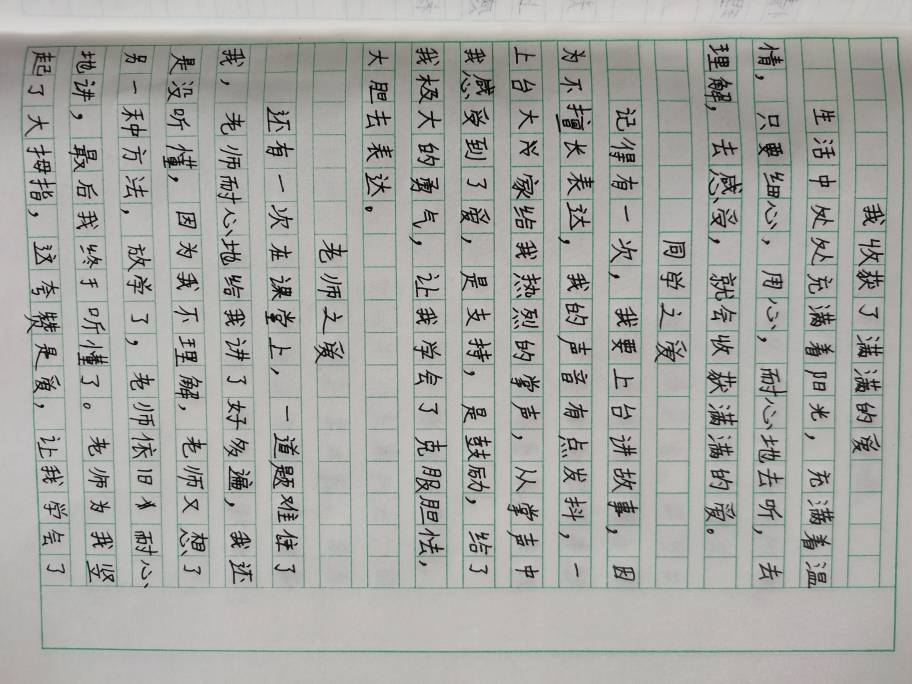 我收获了满满的爱
生活中处处充满着阳光，充满着温
情，只要细心，用心，耐心地去听，去
理解，去感受，就会收获满满的爱。
同学之爱
记得有一次，我要上台讲故事，因
为不擅长表达，我的声音有点发抖，一
上台大家给我热烈的掌声，从掌声中
我感受到了爱，是支持，是鼓励，给了
我极大的勇气，让我学会了克服胆怯，
大胆去表达。
老师之爱
还有一次在课堂上，一道题难住了
我，老师耐心地给我讲了好多遍，我还
是没听懂，因为我不理解，老师又想了
另一种方法，放学了，老师依旧耐心
地讲，最后我终于听懂了。老师为我竖
起了大拇指，这夸赞是爱，让我学会了